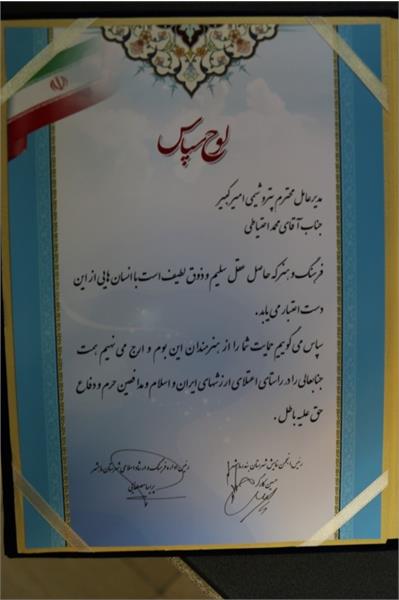 لوح سپاس
مدیرعامل محترم پتروشیمی امیرکبیر
جناب آقای محمد احتیاطی
فرهنگ و هنر که حاصل عقل سلیم و ذوق لطیف است با انسان هایی از این
دست اعتبار می یابد.
سپاس می گوییم حمایت شما را از هنرمندان این بوم و ارج می نهیم همت
جنابعالی را در راستای اعتلای ارزشهای ایران و اسلام و مدافعین حرم و دفاع
حق علیه باطل.
رئیس انجمن نمایش شهرستان بندر ماهشهر
حسین
رئیس اداره فرهنگ و ارشاد اسلامی شهرستان ماهشهر